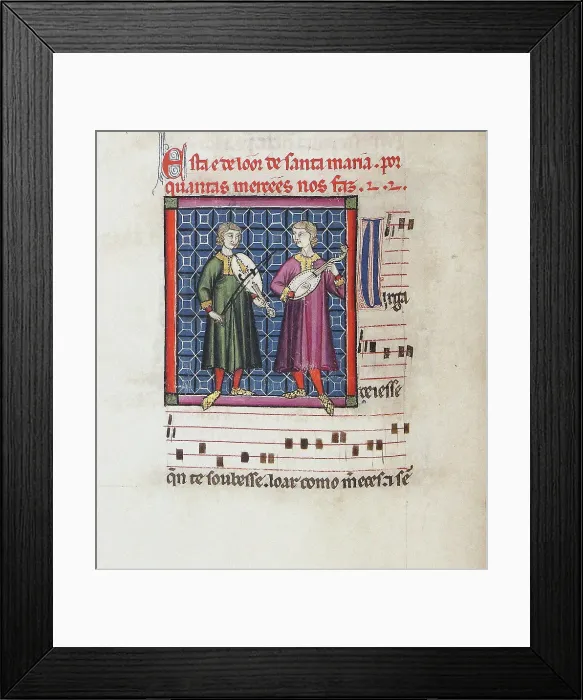 Esta e de loor de santa maria. por
quantas merçees nos faz.
Uirga
de iesse
qn te soubesse. loar como mereces. ⁊ sē